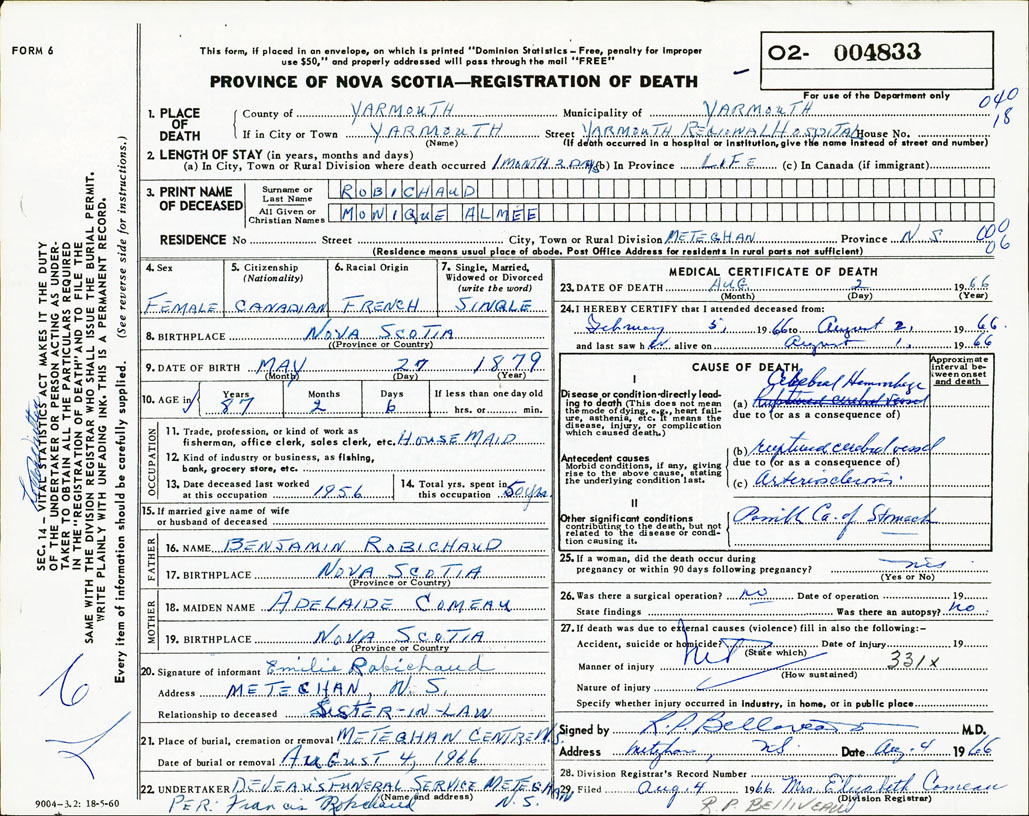 FORM 6
This form, if placed in an envelope, on which is printed "Dominion Statistics – Free, penalty for improper
use $50," and properly addressed will pass through the mail "FREE"
O2- 004833
PROVINCE OF NOVA SCOTIA—REGISTRATION OF DEATH
For use of the Department only
040
18
1. PLACE OF DEATH
County of YARMOUTH Municipality of YARMOUTH
If in City or Town YARMOUTH Street YARMOUTH REGIONAL HOSPITAL House No.
(Name) (If death occurred in a hospital or institution, give the name instead of street and number)
2. LENGTH OF STAY (in years, months and days)
(a) In City, Town or Rural Division where death occurred 1 MONTH 3 DAYS (b) In Province LIFE (c) In Canada (if immigrant)
3. PRINT NAME OF DECEASED
Surname or Last Name ROBICHAUD
All Given or Christian Names MONIQUE ALMEE
RESIDENCE No Street City, Town or Rural Division METEGHAN Province N S
000
06
(Residence means usual place of abode. Post Office Address for residents in rural parts not sufficient)
4. Sex FEMALE
5. Citizenship (Nationality) CANADIAN
6. Racial Origin FRENCH
7. Single, Married, Widowed or Divorced (write the word) SINGLE
8. BIRTHPLACE NOVA SCOTIA
(Province or Country)
9. DATE OF BIRTH MAY 27 1879
(Month) (Day) (Year)
10. AGE in Years 87 Months 2 Days 6 If less than one day old hrs. or min.
OCCUPATION
11. Trade, profession, or kind of work as
fisherman, office clerk, sales clerk, etc. HOUSE MAID
12. Kind of industry or business, as fishing,
bank, grocery store, etc.
13. Date deceased last worked
at this occupation 1956
14. Total yrs. spent in
this occupation 50 yrs.
15. If married give name of wife
or husband of deceased
FATHER
16. NAME BENJAMIN ROBICHAUD
17. BIRTHPLACE NOVA SCOTIA
(Province or Country)
MOTHER
18. MAIDEN NAME ADELAIDE COMEAU
19. BIRTHPLACE NOVA SCOTIA
(Province or Country)
20. Signature of informant Emilie Robichaud
Address METEGHAN, N.S.
Relationship to deceased SISTER-IN-LAW
21. Place of burial, cremation or removal METEGHAN CENTRE N.S.
Date of burial or removal AUGUST 4, 1966
22. UNDERTAKER DEVEAU'S FUNERAL SERVICE METEGHAN
(Name and address) N.S.
PER: Francis Robichaud
9004–3.2: 18-5-60
MEDICAL CERTIFICATE OF DEATH
23. DATE OF DEATH AUG 2 1966
(Month) (Day) (Year)
24. I HEREBY CERTIFY that I attended deceased from:
February 5, 1966 to August 2, 1966.
and last saw her alive on August 1, 1966
CAUSE OF DEATH
Approximate interval between onset and death
I
Disease or condition directly leading to death (This does not mean
the mode of dying, e.g., heart failure, asthenia, etc. It means the
disease, injury, or complication
which caused death.)
Cerebral Hemorrhage
(a) Ruptured cerebral vessel
due to (or as a consequence of)
Antecedent causes
Morbid conditions, if any, giving
rise to the above cause, stating
the underlying condition last.
(b) ruptured cerebral vessel
due to (or as a consequence of)
(c) Arteriosclerosis.
II
Other significant conditions
contributing to the death, but not
related to the disease or condition causing it.
Possible Ca. of Stomach
25. If a woman, did the death occur during
pregnancy or within 90 days following pregnancy?
(Yes or No)
26. Was there a surgical operation? no Date of operation 19
State findings Was there an autopsy? no
27. If death was due to external causes (violence) fill in also the following:–
Accident, suicide or homicide? Date of injury 19
(State which)
Manner of injury 331x
(How sustained)
Nature of injury
Specify whether injury occurred in industry, in home, or in public place
Signed by R.P. Belliveau M.D.
Address Meteghan, NS Date Aug. 4 1966
28. Division Registrar's Record Number
29. Filed Aug. 4 1966 Mrs. Elizabeth Comeau
(Division Registrar)
R.P. BELLIVEAU
SEC. 14 – VITAL STATISTICS ACT MAKES IT THE DUTY
OF THE UNDERTAKER OR PERSON ACTING AS UNDERTAKER TO OBTAIN ALL THE PARTICULARS REQUIRED
IN THE "REGISTRATION OF DEATH" AND TO FILE THE
SAME WITH THE DIVISION REGISTRAR WHO SHALL ISSUE THE BURIAL PERMIT.
WRITE PLAINLY WITH UNFADING INK. THIS IS A PERMANENT RECORD.
Every item of information should be carefully supplied. (See reverse side for instructions.)